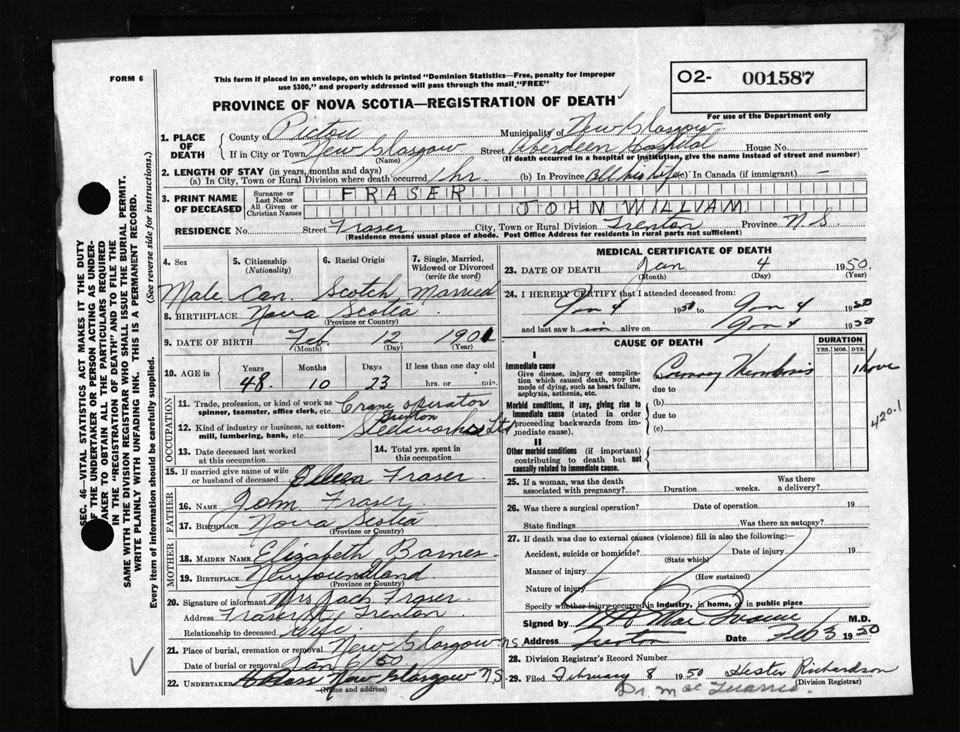 FORM 6
This form if placed in an envelope, on which is printed "Dominion Statistics—Free, penalty for improper
use $300," and properly addressed will pass through the mail "FREE"
O2- 001587
For use of the Department only
PROVINCE OF NOVA SCOTIA—REGISTRATION OF DEATH
1. PLACE OF DEATH County of Pictou Municipality of New Glasgow
If in City or Town New Glasgow (Name) Street Aberdeen Hospital House No.
(If death occurred in a hospital or institution, give the name instead of street and number)
2. LENGTH OF STAY (in years, months and days)
(a) In City, Town or Rural Division where death occurred 1 hr (b) In Province All his life (c) In Canada (if immigrant) —
3. PRINT NAME OF DECEASED Surname or Last Name FRASER
All Given or Christian Names JOHN WILLIAM
RESIDENCE No. Street Fraser City, Town or Rural Division Trenton Province N.S
(Residence means usual place of abode. Post Office Address for residents in rural parts not sufficient)
4. Sex 5. Citizenship (Nationality) 6. Racial Origin 7. Single, Married, Widowed or Divorced (write the word)
Male Can. Scotch Married
8. BIRTHPLACE Nova Scotia
(Province or Country)
9. DATE OF BIRTH Feb. 12 1901
(Month) (Day) (Year)
10. AGE in Years Months Days If less than one day old
48 10 23 hrs. or min.
OCCUPATION
11. Trade, profession, or kind of work as spinner, teamster, office clerk, etc. Crane operator
12. Kind of industry or business, as cotton-mill, lumbering, bank, etc. Trenton Steelworks Ltd
13. Date deceased last worked at this occupation 14. Total yrs. spent in this occupation
15. If married give name of wife or husband of deceased Fraser
FATHER
16. Name John Fraser
17. Birthplace Nova Scotia
(Province or Country)
MOTHER
18. Maiden Name Elizabeth Barnes
19. Birthplace Newfoundland
(Province or Country)
20. Signature of informant Mrs Jack Fraser
Address Fraser St Trenton
Relationship to deceased wife
21. Place of burial, cremation or removal New Glasgow N.S.
Date of burial or removal Jan 6/50
22. Undertaker New Glasgow N S
(Name and address)
MEDICAL CERTIFICATE OF DEATH
23. DATE OF DEATH Jan 4 1950
(Month) (Day) (Year)
24. I HEREBY CERTIFY that I attended deceased from:
Jan 4 1950 to Jan 4 1950
and last saw him alive on Jan 4 1950
CAUSE OF DEATH DURATION
YRS. MOS. DYS.
I
Immediate cause
Give disease, injury or complication which caused death, NOT the mode of dying, such as heart failure, asphyxia, asthenia, etc.
Coronary Thrombosis 1 hour
due to
Morbid conditions, if any, giving rise to immediate cause (stated in order proceeding backwards from immediate cause).
(b)
due to
(c)
420.1
II
Other morbid conditions (if important) contributing to death but not causally related to immediate cause.
25. If a woman, was the death associated with pregnancy? Duration weeks. Was there a delivery?
26. Was there a surgical operation? Date of operation 19
State findings Was there an autopsy?
27. If death was due to external causes (violence) fill in also the following:
Accident, suicide or homicide? (State which) Date of injury 19
Manner of injury (How sustained)
Nature of injury
Specify whether injury occurred in industry, in home, or in public place
Signed by M.D.
Address Trenton Date Feb 3 1950
28. Division Registrar's Record Number
29. Filed February 8 1950 Hester Richardson
(Division Registrar)
SEC. 46—VITAL STATISTICS ACT MAKES IT THE DUTY
OF THE UNDERTAKER OR PERSON ACTING AS UNDER-
TAKER TO OBTAIN ALL THE PARTICULARS REQUIRED
IN THE "REGISTRATION OF DEATH" AND TO FILE THE
SAME WITH THE DIVISION REGISTRAR WHO SHALL ISSUE THE BURIAL PERMIT.
WRITE PLAINLY WITH UNFADING INK. THIS IS A PERMANENT RECORD.
Every item of information should be carefully supplied. (See reverse side for instructions.)